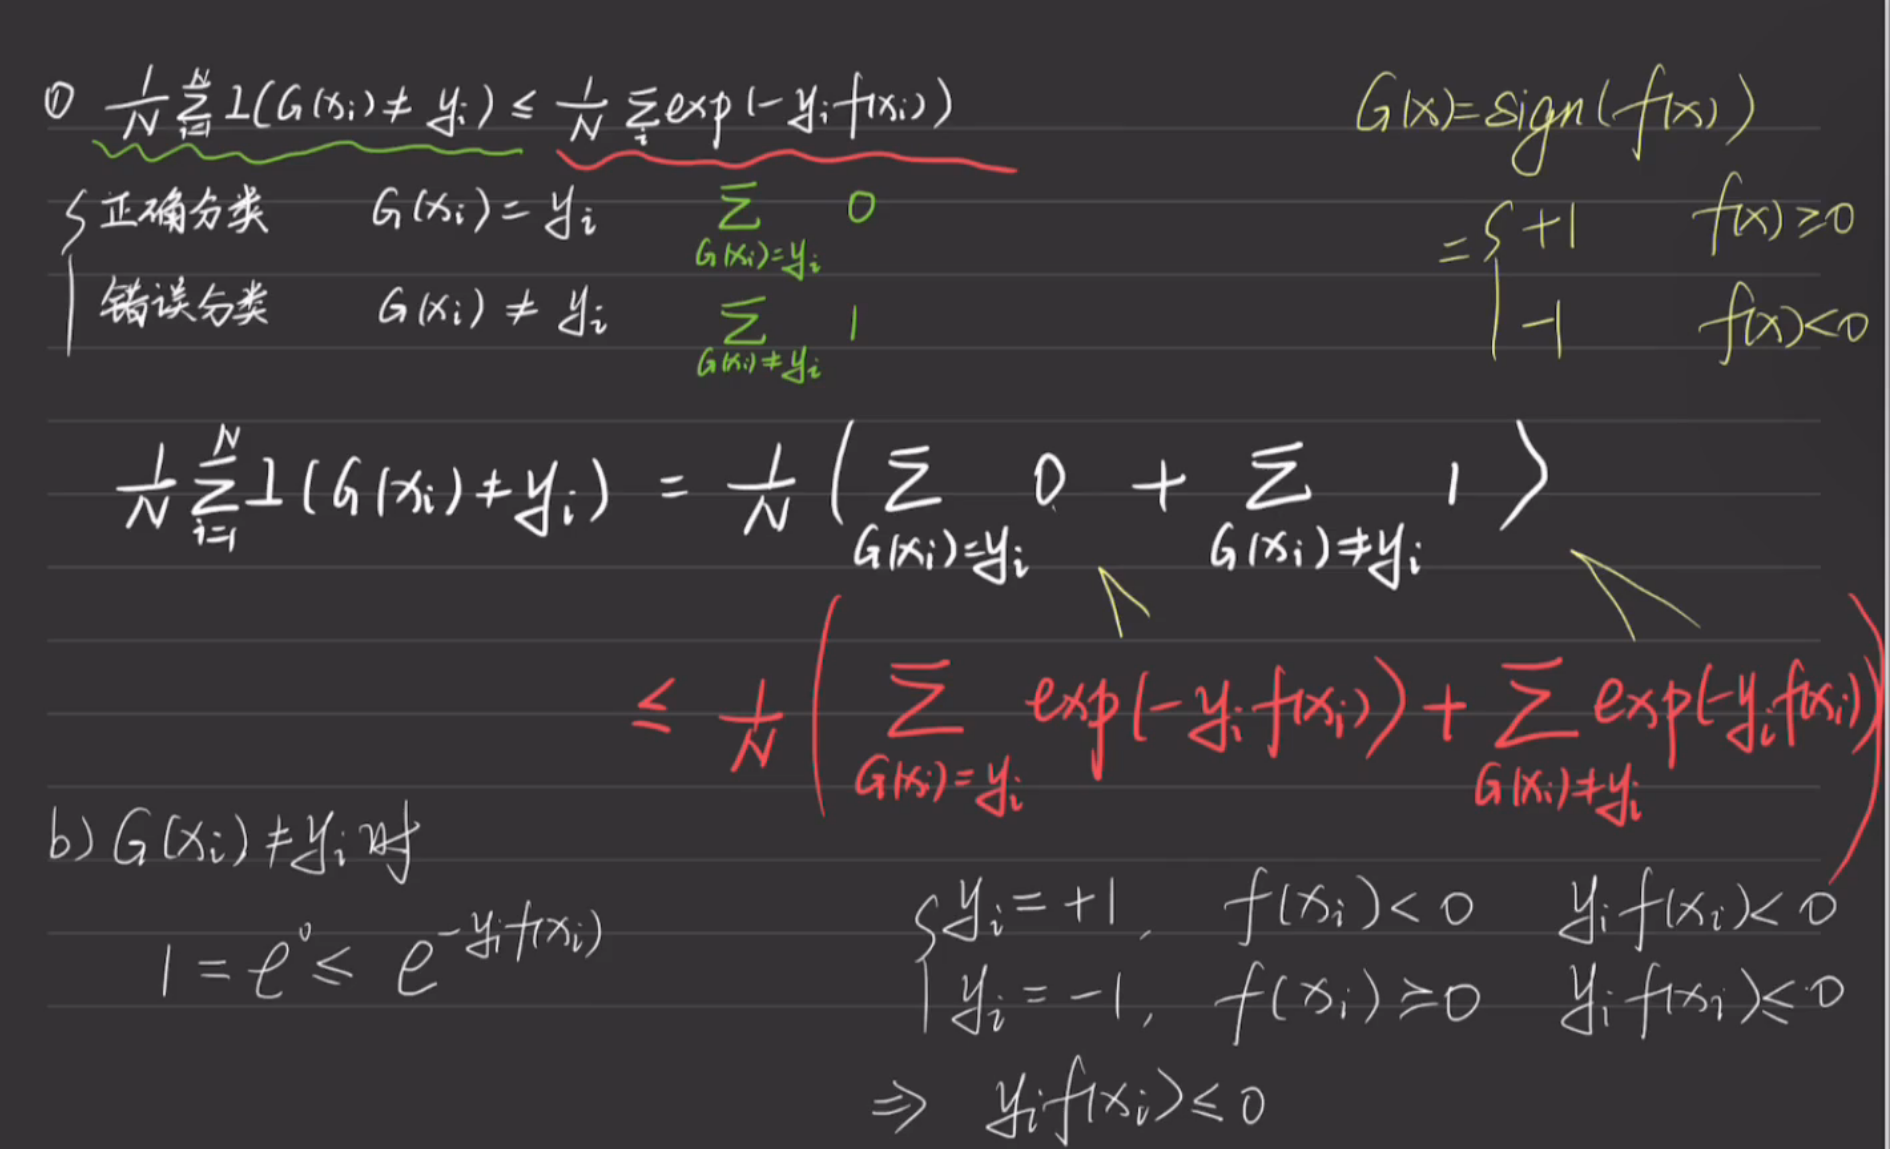 ① 1/N Σ_{i=1}^{N} 1(G(xᵢ) ≠ yᵢ) ≤ 1/N Σ_i exp(-yᵢ f(xᵢ))
G(x) = sign(f(x))
= { +1 f(x) ≥ 0
-1 f(x) < 0
{ 正确分类 G(xᵢ) = yᵢ Σ_{G(xᵢ)=yᵢ} 0
错误分类 G(xᵢ) ≠ yᵢ Σ_{G(xᵢ)≠yᵢ} 1
1/N Σ_{i=1}^{N} 1(G(xᵢ) ≠ yᵢ) = 1/N ( Σ_{G(xᵢ)=yᵢ} 0 + Σ_{G(xᵢ)≠yᵢ} 1 )
≤ 1/N ( Σ_{G(xᵢ)=yᵢ} exp(-yᵢ f(xᵢ)) + Σ_{G(xᵢ)≠yᵢ} exp(-yᵢ f(xᵢ)) )
b) G(xᵢ) ≠ yᵢ 时
1 = e^0 ≤ e^{-yᵢ f(xᵢ)}
{ yᵢ = +1, f(xᵢ) < 0 yᵢ f(xᵢ) < 0
yᵢ = -1, f(xᵢ) ≥ 0 yᵢ f(xᵢ) ≤ 0
⇒ yᵢ f(xᵢ) ≤ 0